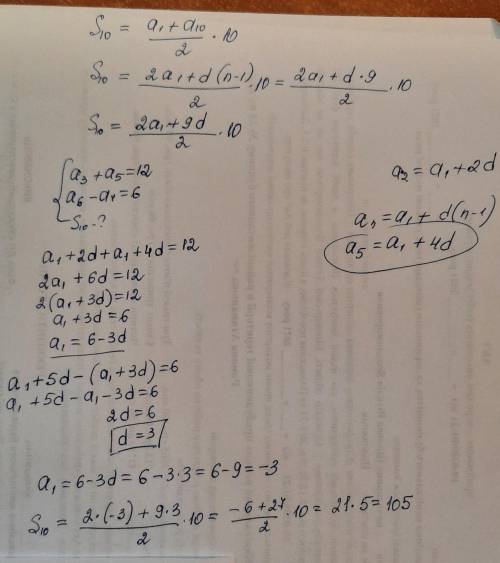 S₁₀ = (a₁ + a₁₀)/2 · 10
S₁₀ = (2a₁ + d(n-1))/2 · 10 = (2a₁ + d·9)/2 · 10
S₁₀ = (2a₁ + 9d)/2 · 10
{ a₃ + a₅ = 12
a₆ - a₄ = 6
S₁₀ - ?
a₂ = a₁ + 2d
aₙ = a₁ + d(n-1)
a₅ = a₁ + 4d
a₁ + 2d + a₁ + 4d = 12
2a₁ + 6d = 12
2(a₁ + 3d) = 12
a₁ + 3d = 6
a₁ = 6 - 3d
a₁ + 5d - (a₁ + 3d) = 6
a₁ + 5d - a₁ - 3d = 6
2d = 6
d = 3
a₁ = 6 - 3d = 6 - 3·3 = 6 - 9 = -3
S₁₀ = (2·(-3) + 9·3)/2 · 10 = (-6 + 27)/2 · 10 = 21·5 = 105